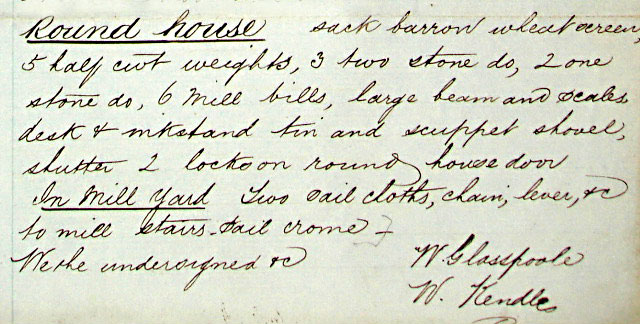 Round house sack barrow wheat screen,
5 half cwt weights, 3 two stone do, 2 one
stone do, 6 Mill bills, large beam and scales
desk & inkstand tin and scuppet shovel,
shutter 2 locks on round house door
In Mill Yard Two sail cloths, chain, lever, &c
to mill stairs - sail crome -
We the undersigned &c
W Glasspoole
W. Kendle